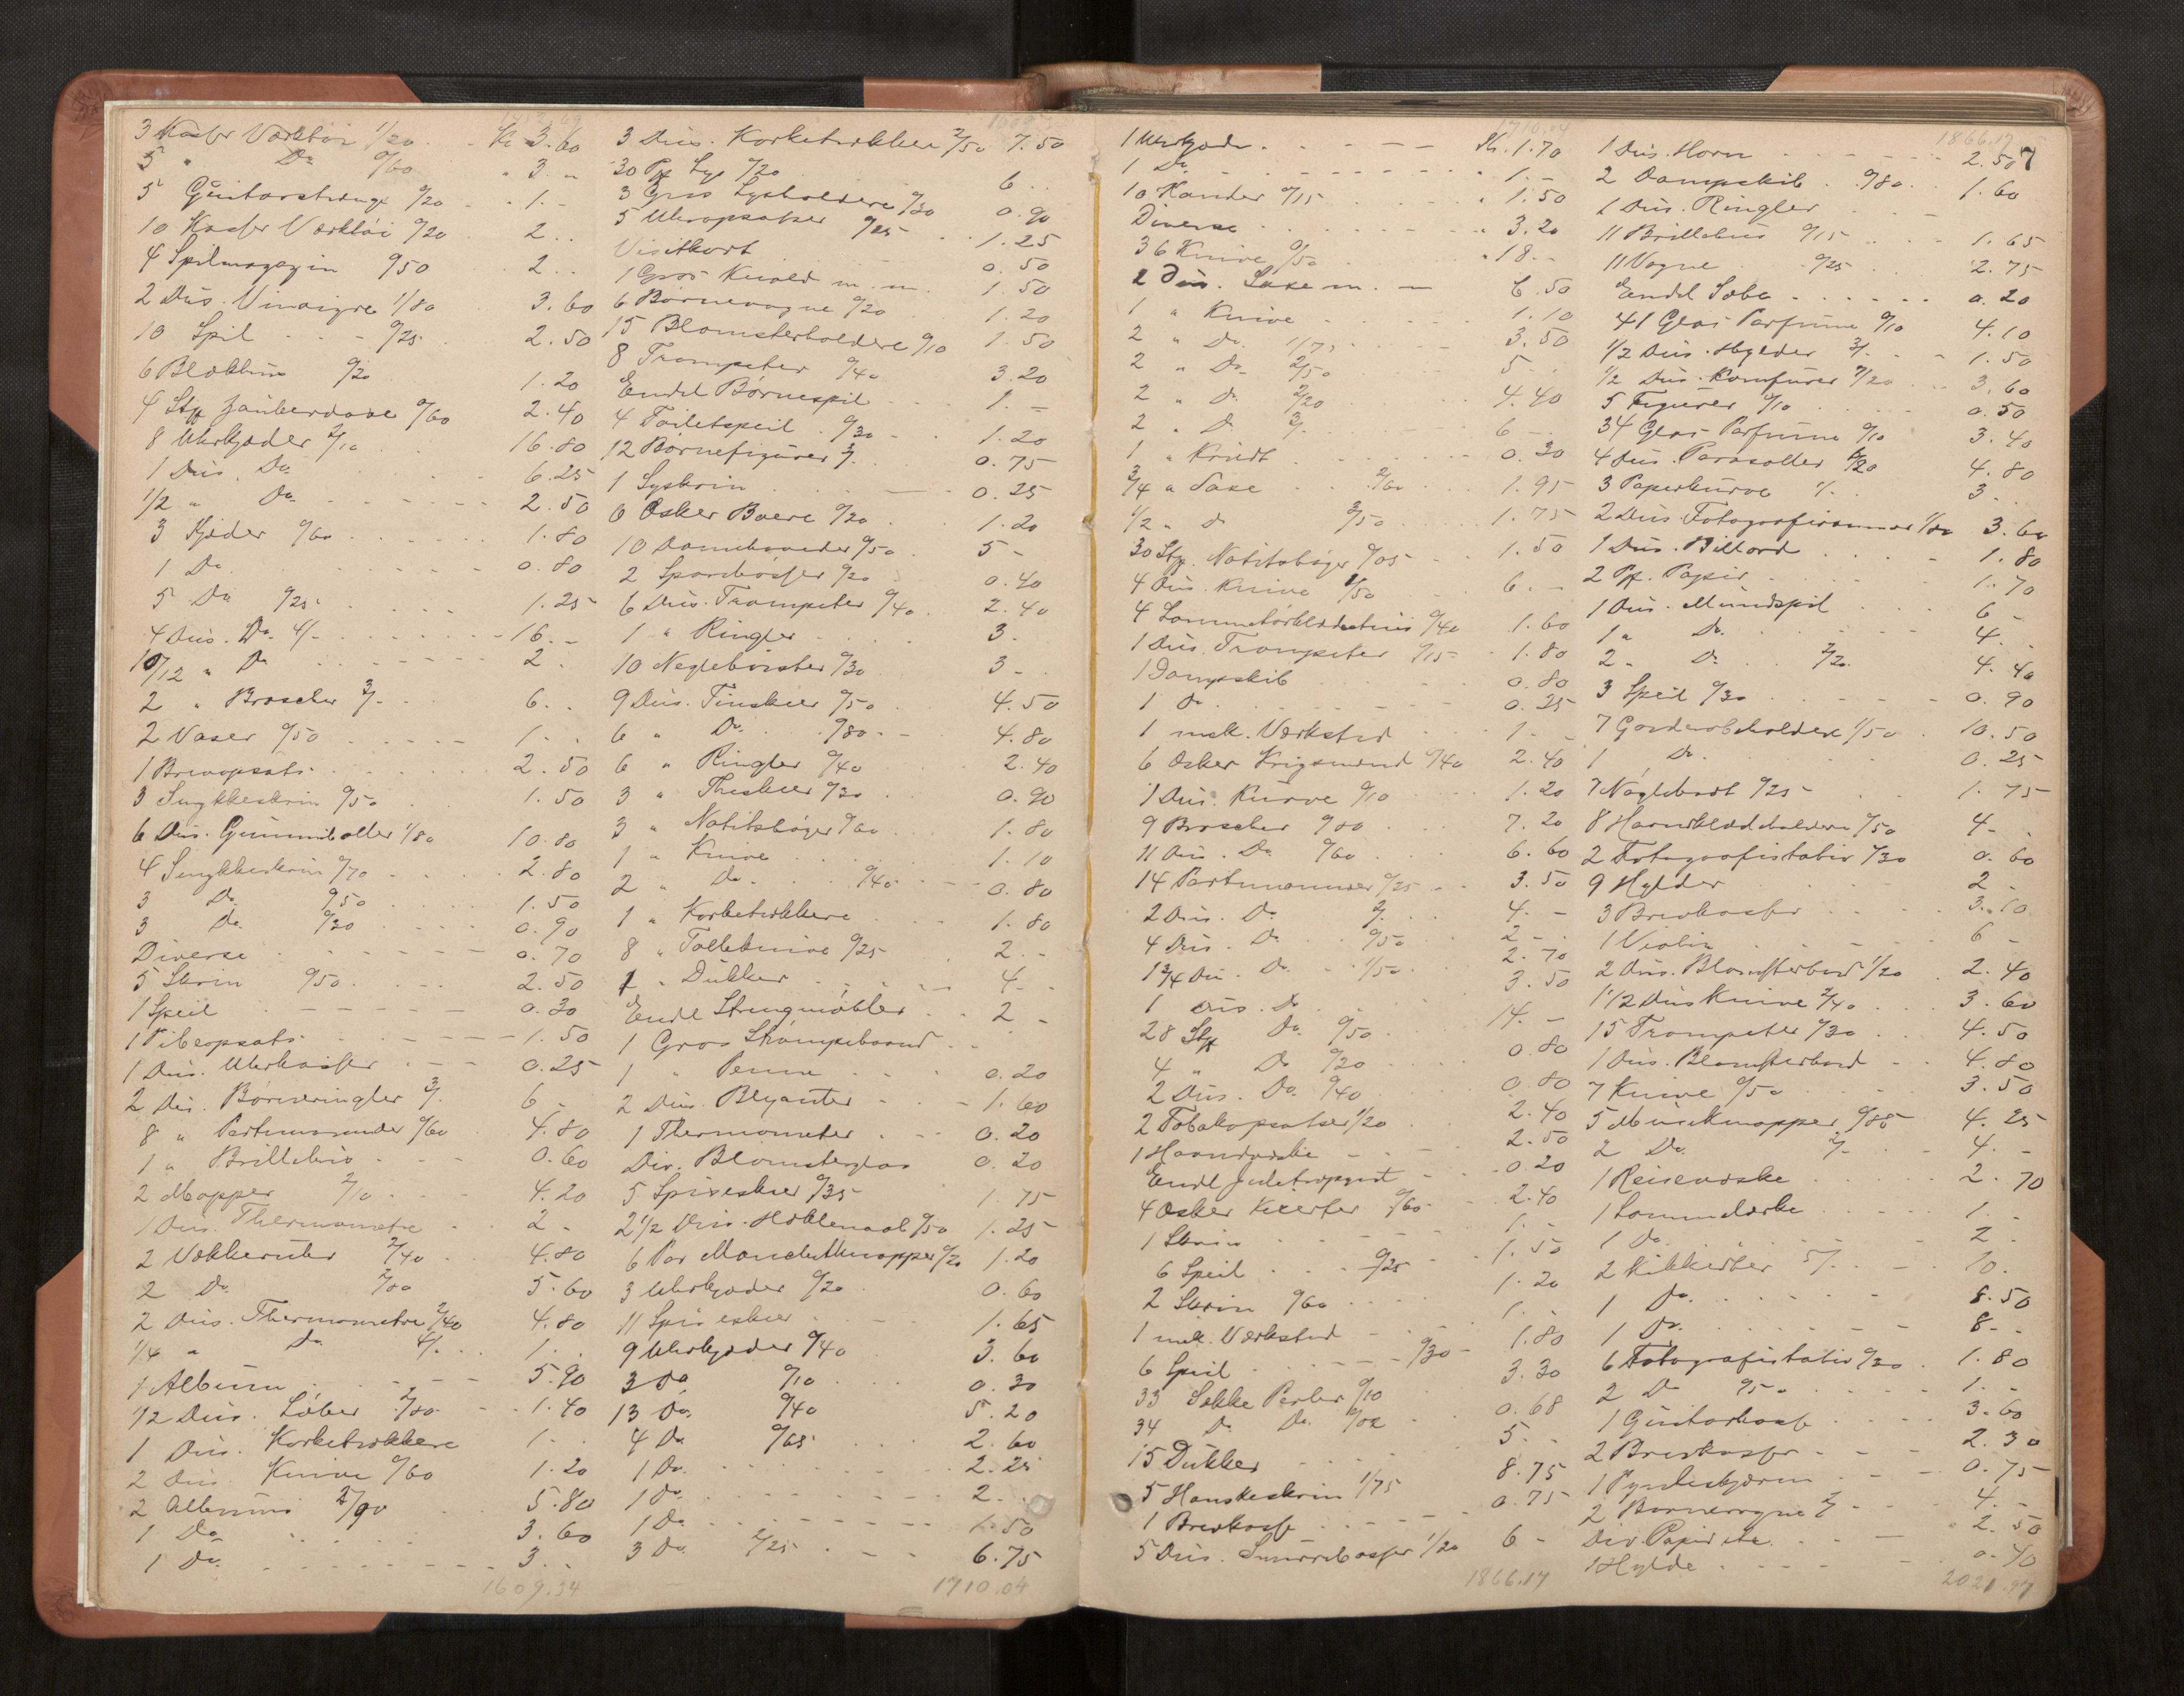 3 Kasser Værktøi 1/20 Kr 3.60
5 " Do 0/60 " 3. "
5 Guitarstrenge 0/20 1. -
10 Kasser Værktøi 0/20 2 . .
4 Spilmagazin 0/50 2 . .
2 Dus. Vinaigre 1/80 3.60
10 Spil 0/25 2.50
6 Blækhus 0/20 1.20
4 Stk Zauberdose 0/60 2.40
8 Uhrkjæder 2/10 16.80
1 Dus. Do 6.25
1/2 " Do 2.50
3 Kjæder 0/60 1.80
1 Do 0.80
5 Do 0/25 1.25
4 Dus. Do. 4/- 16. -
10/12 " Do 2 .
2 " Brocher 3/- 6 . .
2 Vaser 0/50 1 - .
1 Brevopsats 2.50
3 Smykkeskrin 0/50 1.50
6 Dus. Gummiballer 1/80 10.80
4 Smykkeskrin 0/70 2.80
3 Do 0/50 1.50
3 Do. 0/30 0.90
Diverse 0.70
5 Skrin 0/50 2.50
1 Speil 0.30
1 Pibeopsats 1.50
1 Dus. Uhrkasser 0.25
2 Dus. Børneringler 3/- 6 -
8 " Portemonnæer 0/60 4.80
1 " Brillehus 0.60
2 Mapper 2/10 4.20
1 Dus. Thermometre 2 -
2 Vækkeruhr 2/40 4.80
2 Do 2/80 5.60
2 Dus. Thermometre 2/40 4.80
1/4 " Do 4/- 1 .
1 Album 5.90
1/2 Dus. Læber 2/80 1.40
1 Dus. Korketrækkere 1 - .
2 Dus. Knive 0/60 1.20
2 Albums 2/90 5.80
1 Do 3.60
1 Do. 3 . .
1609.34
3 Dus. Korketrækkere 2/50 7.50
30 Pk Lys 0/20 6 . .
3 Gros Lysholdere 0/30 0.90
5 Uhropsatser 0/25 1.25
Visitkort 0.50
1 Gros Knald m. m. 1.50
6 Børnevogne 0/20 1.20
15 Blomsterholdere 0/10 1.50
8 Trompeter 0/40 3.20
Endel Børnespil 1. -
4 Toiletspeil 0/30 1.20
12 Børnefigurer 0.75
1 Syskrin 0.25
6 Æsker Bære 0/20 1.20
10 Dambræder 0/50 5 -
2 Sparebøsser 0/20 0.40
6 Dus. Trompeter 0/40 2.40
1 " Ringler 3 .
10 Neglebørster 0/30 3 - .
9 Dus. Tinskeer 0/50 4.50
6 " Do. 0/80 4.80
6 " Ringler 0/40 2.40
3 " Theskeer 0/30 0.90
3 " Notitsbøger 0/60 1.80
1 " Knive 1.10
2 " Do 0/40 0.80
1 " Korketrækkere 1.80
8 " Tælleknive 0/25 2 . -
1 " Dukker 4 - .
Endl Strengmøbler 2 -
1 Gros Strømpebaand
1 " Penne 0.20
2 Dus. Blyanter 1.60
1 Thermometer 0.20
Div. Blomsterglas 0.20
5 Spiseskeer 0/35 1.75
2 1/2 Dus. Hæklenaal 0/50 1.25
6 Par Manchetknapper 0/20 1.20
3 Uhrkjæder 0/20 0.60
11 Spiseskeer 1.65
9 Uhrkjæder 0/40 3.60
3 Do 0/10 0.30
13 Do. 0/40 5.20
4 Do 0/65 2.60
1 Do. 2.25
1 Do. 2 . .
1 Do 1.50
3 Do 2/25 6.75
1710.04
1710.04
1 Uhrkjæde Kr. 1.70
1 Do 1. -
10 Kander 0/15 1.50
Diverse 3.20
36 Knive 0/50 18. -
2 Dus. Saxe m. - 6.50
1 " Knive 1.10
2 " Do. 1/75 3.50
2 " Do 2/50 5 - .
2 " Do 2/20 4.40
2 " Do 3/- 6 - .
1 " Kridt 0.30
3/4 " Saxe 2/60 1.95
1/2 " Do 3/50 1.75
30 Stk. Notitsbøger 0/05 1.50
4 Dus. Knive 1/50 6 . -
4 Lommetørklædehus 0/40 1.60
1 Dus. Trompeter 0/15 1.80
1 Dampskib 0.80
1 Do. 0.25
1 mek. Værksted 1 - .
6 Æsker Krigsmænd 0/40 2.40
1 Dus. Kurve 0/10 1.20
9 Brocher 0/80 7.20
11 Dus. Do 0/60 6.60
14 Portemonnæer 0/25 3.50
2 Dus. Do 2/- 4. -
4 Dus. Do 0/50 2 - .
1 3/4 Du. Do. 1/50 2.70
1 Dus. Do 3.50
28 Stk Do. 0/50 14. -
4 " Do 0/20 0.80
2 Dus. Do. 0/40 0.80
2 Tobakopsatser 1/20 2.40
1 Haandvæske 2.50
Endl Juletræpynt 0.20
4 Æsker Kjerter 0/60 2.40
1 Skrin 1. -
6 Speil 0/25 1.50
2 Skrin 0/60 1.20
1 mek. Værksted 1 . -
6 Speil 0/30 1.80
33 Sække Perler 0/10 3.30
34 Do Do. 0/02 0.68
15 Dukker 5 - .
5 Hanskeskrin 1/75 8.75
1 Brevkasse 0.75
5 Dus. Smørrebøsser 1/20 6 -
1866.17
1866.17
1 Dus. Horn 2.50
2 Dampskib 0/80 1.60
1 Dus. Ringler
11 Brillehus 0/15 1.65
11 Vogne 0/25 2.75
Endel Sæbe 0.20
41 Glas Parfume 0/10 4.10
1/2 Dus. Hylder 3/- 1.50
1/2 Dus. Komfurer 7/20 3.60
5 Figurer 0/10 0.50
34 Glas Parfume 0/10 3.40
4 Dus. Parasoller 1/20 4.80
3 Papirkurve 1/- 3 . .
2 Dus. Fotografirammer 1/80 3.60
1 Dus. Billard 1.80
2 Pk. Papir 1.70
1 Dus. Mundspil 6 -
1 " Do. 4 . .
2 " Do 2/20 4.40
3 Speil 0/30 0.90
7 Garderobeholdere 1/50 10.50
1 Do. 0.25
7 Nøglebrædt 0/25 1.75
8 Haandklædeholdere 0/50 4 - .
2 Fotografistativ 0/30 0.60
9 Hylder 2 -
3 Brevkasser 3.10
1 Violin 6 -
2 Dus. Blomsterbord 1/20 2.40
1 1/2 Dus Knive 2/40 3.60
15 Trompeter 0/30 4.50
1 Dus. Blomsterbord 4.80
7 Knive 0/50 3.50
5 Musikmapper 0/85 4.25
2 Do. 2/- 4 . -
1 Reisevæske 2.70
1 Lommelærke 1 . -
1 Do. 2 -
2 Kikkerter 5/- 10.
1 Do. 8.50
1 Do. 8 - .
6 Fotografistativ 0/30 1.80
2 Do 0/50 1 . -
1 Guitarkasse 3.60
2 Brevkasser 2.30
1 Pyntesкjærm 0.75
2 Børnevogne 2/- 4. -
Div Papir etc. 2.50
1 Hylde 0.40
2021.27